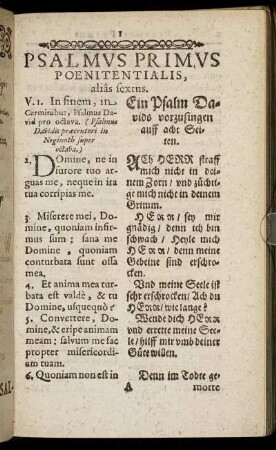 1
PSALMVS PRIMVS
POENITENTIALIS,
aliàs sextus.
V. 1. In finem, in
Carminibus, Psalmus Da-
vid pro octava. (Psalmus
Davidis præcentori in
Neginoth super
octava.)
2. DOmine, ne in
furore tuo ar-
guas me, neque in ira
tua corripias me.
3. Miserere mei, Do-
mine, quoniam infir-
mus sum; sana me
Domine, quoniam
conturbata sunt ossa
mea.
4. Et anima mea tur-
bata est valdè, & tu
Domine, usquequò?
5. Convertere, Do-
mine, & eripe animam
meam; salvum me fac
propter misericordi-
am tuam.
6. Quoniam non est in
Ein Psalm Da-
vids vorzusingen
auff acht Sei-
ten.
ACh HERR straff
mich nicht in dei-
nem Zorn / und züchti-
ge mich nicht in deinem
Grimm.
HERR / sey mir
gnädig / denn ich bin
schwach / Heyle mich
HERR / denn meine
Gebeine sind erschro-
cken.
Und meine Seele ist
sehr erschrocken / Ach du
HERR / wie lange?
Wende dich HERR
und errette meine See-
le / hilff mir umb deiner
Güte willen.
Denn im Todte ge-
A
morte
SAL-